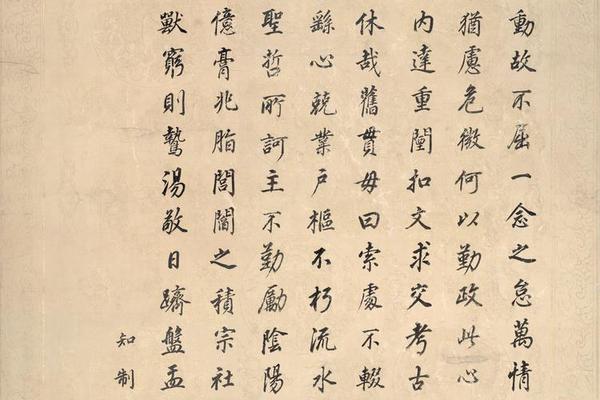 動故不屈一念之怠萬情
猶慮危微何以勤政此心
內達重闉扣文求交考古
休哉舊貫毋曰索處不輟
繇心兢業戶樞不朽流水
聖哲所訶主不勤勵陰陽
億膏兆脂閭閻之積宗社
獸窮則鷙湯敬日躋盤盂
知制